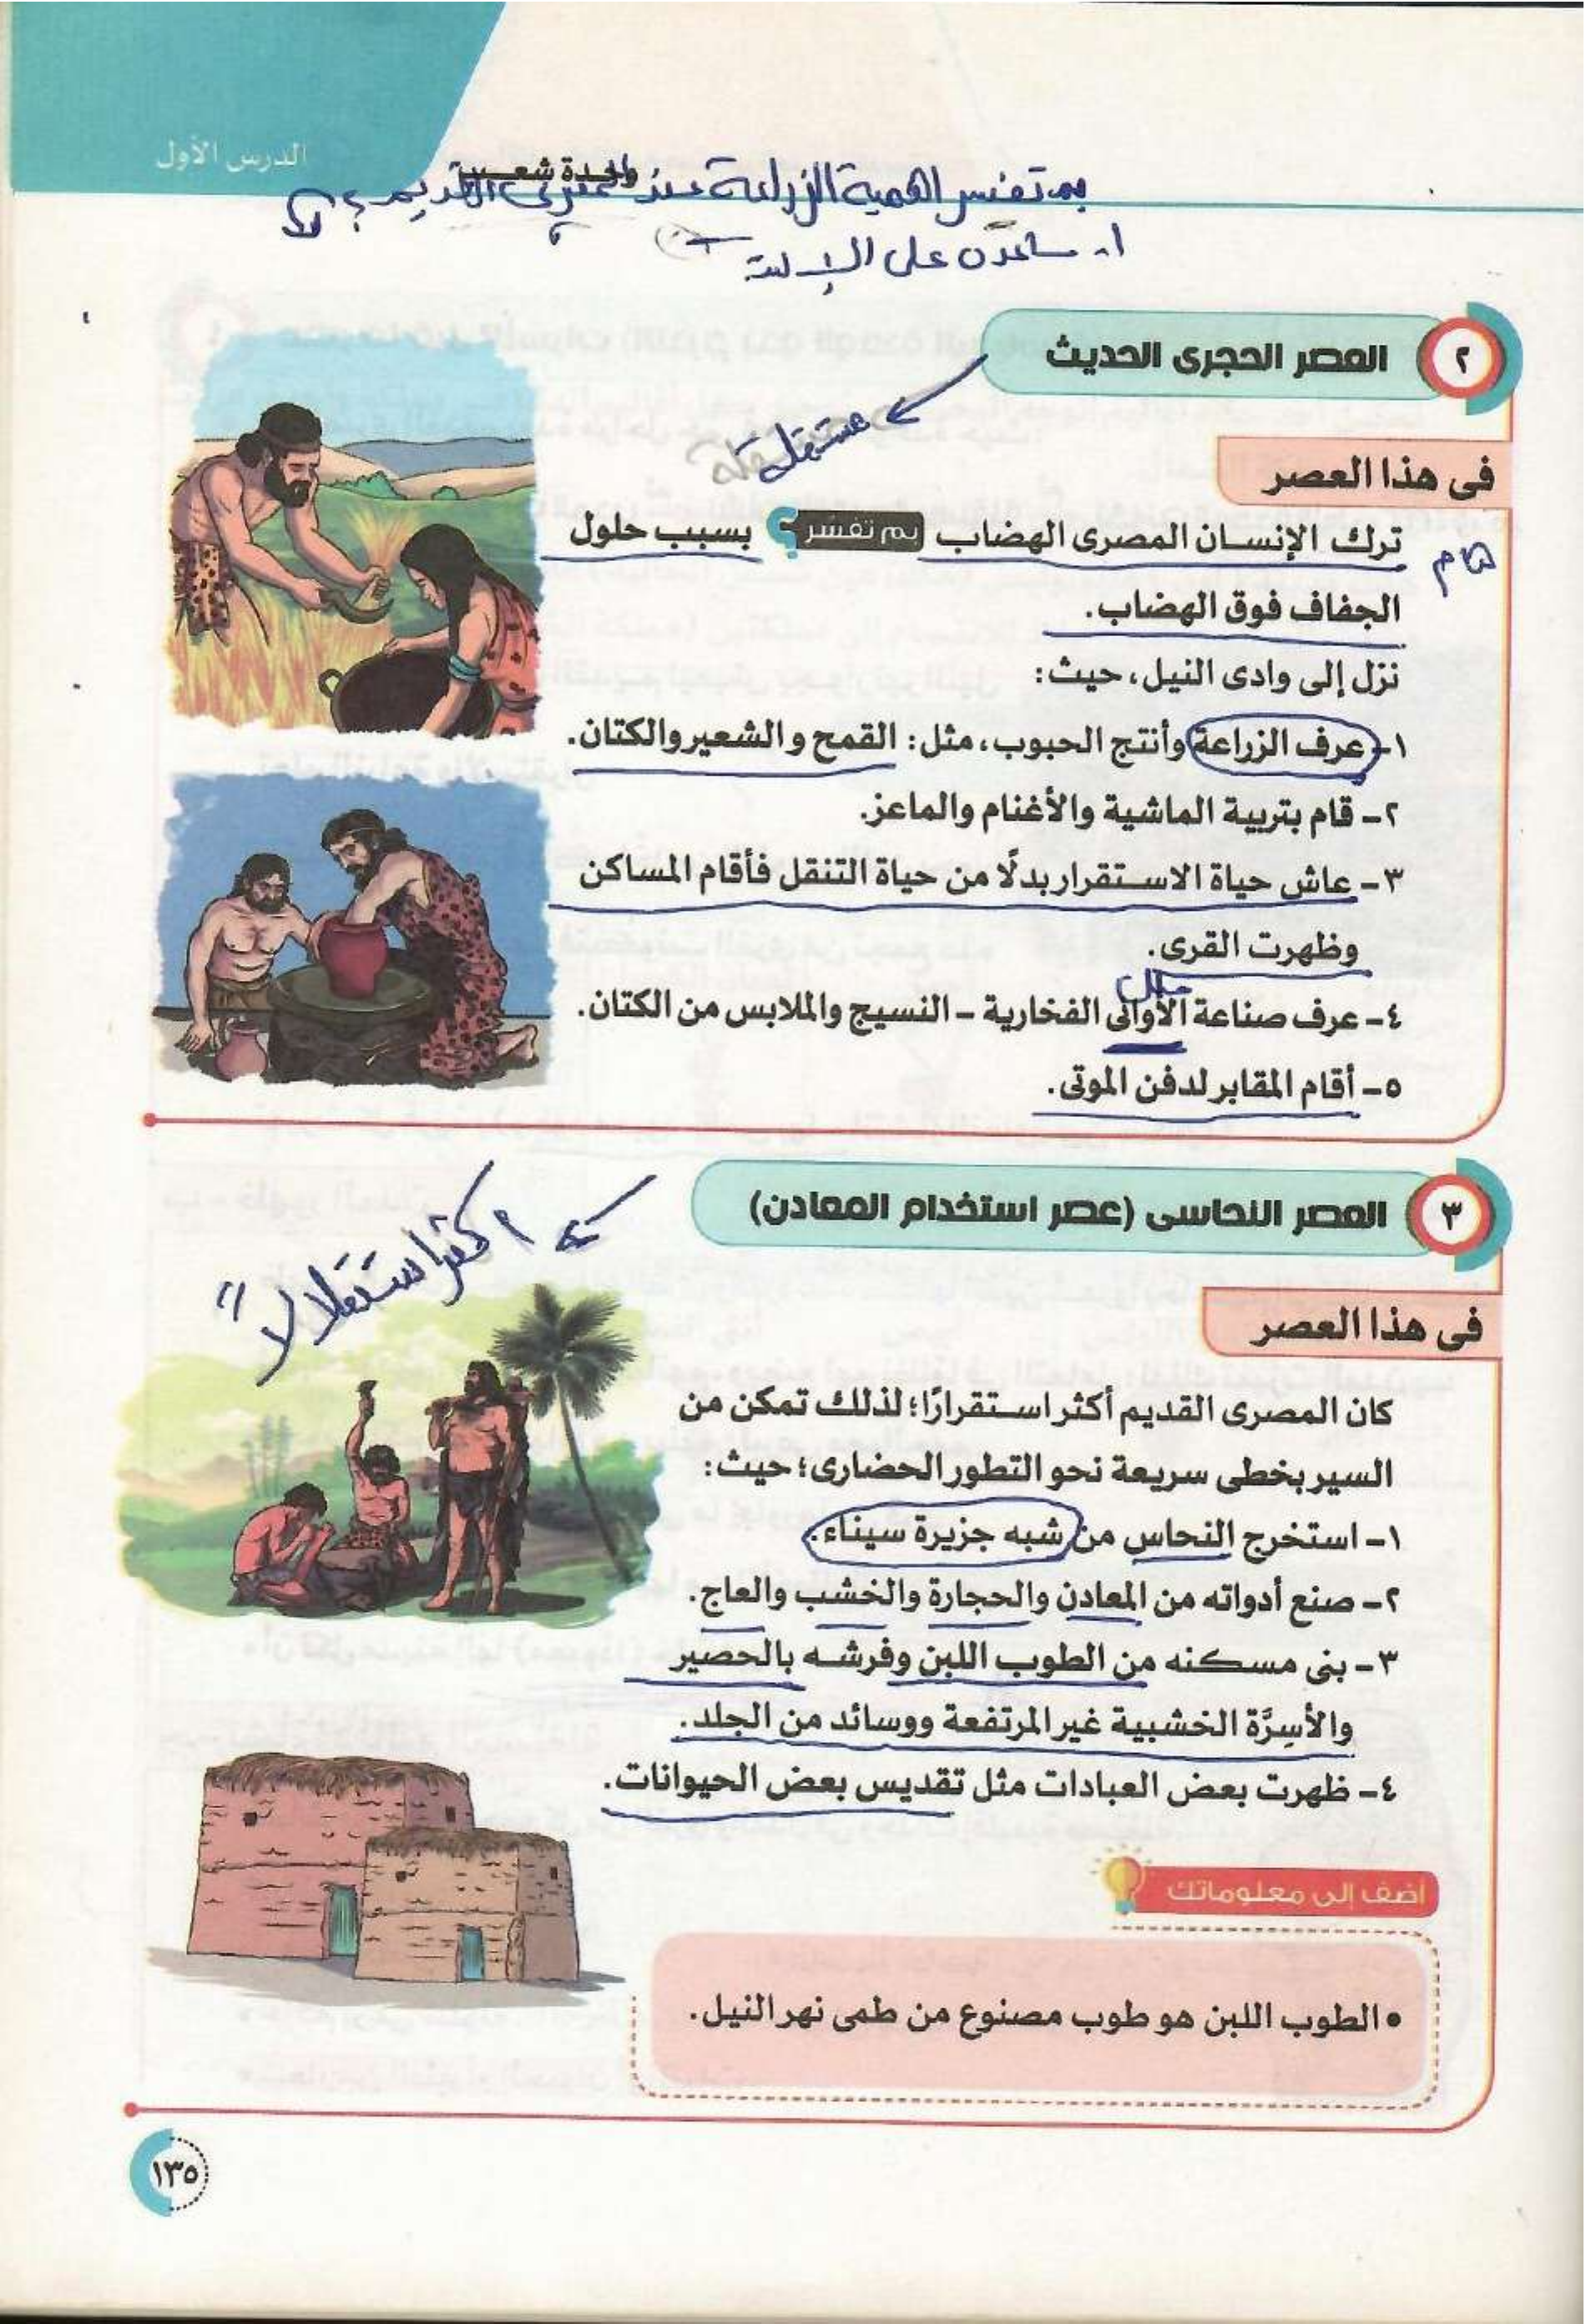 الدرس الأول
بم تفسر اهمية الزراعة عند المصري القديم؟
١- ساعدت على
٢ العصر الحجرى الحديث
مستقلة
فى هذا العصر
ترك الإنسان المصرى الهضاب بم تفسر؟ بسبب حلول
هام
الجفاف فوق الهضاب.
نزل إلى وادى النيل، حيث:
١- عرف الزراعة وأنتج الحبوب، مثل: القمح والشعير والكتان.
٢- قام بتربية الماشية والأغنام والماعز.
٣- عاش حياة الاستقرار بدلًا من حياة التنقل فأقام المساكن
وظهرت القرى.
٤- عرف صناعة الأوانى الفخارية - النسيج والملابس من الكتان.
٥- أقام المقابر لدفن الموتى.
٣ العصر النحاسى (عصر استخدام المعادن)
اكثر استقلالاً
فى هذا العصر
كان المصرى القديم أكثر استقرارًا؛ لذلك تمكن من
السير بخطى سريعة نحو التطور الحضارى؛ حيث:
١- استخرج النحاس من شبه جزيرة سيناء.
٢- صنع أدواته من المعادن والحجارة والخشب والعاج.
٣- بنى مسكنه من الطوب اللبن وفرشه بالحصير
والأسِرَّة الخشبية غير المرتفعة ووسائد من الجلد.
٤- ظهرت بعض العبادات مثل تقديس بعض الحيوانات.
أضف إلى معلوماتك
• الطوب اللبن هو طوب مصنوع من طمى نهر النيل.
١٣٥